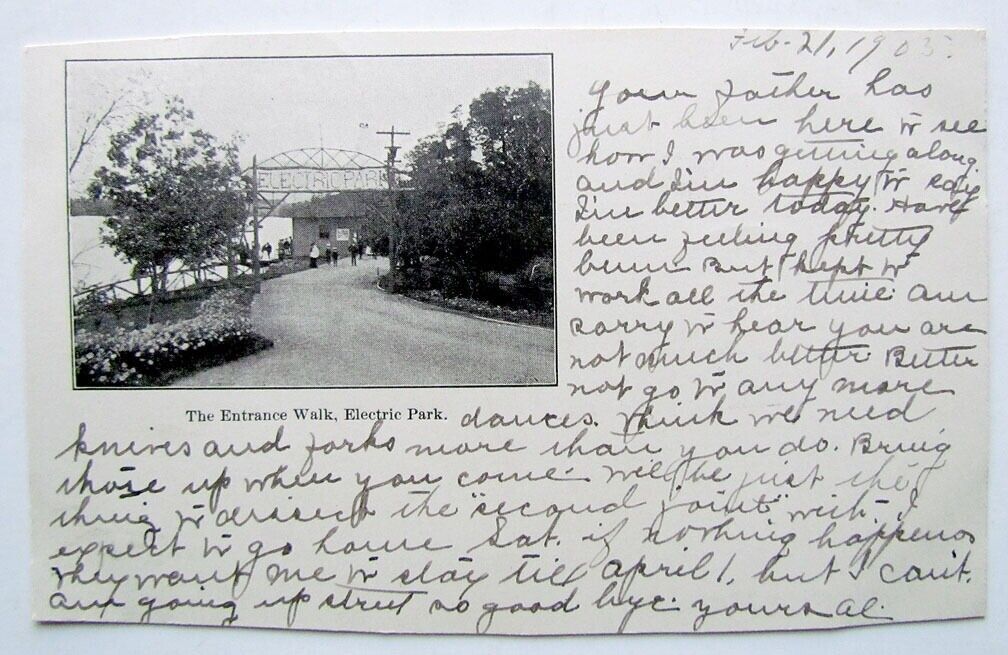 Feb-21, 1905.
Your father has
just been here to see
how I was getting along
and I'm happy to say
I'm better today. Have
been feeling pretty
bum But kept to
work all the time am
sorry to hear you are
not much better Better
not go to any more
ELECTRIC PARK
The Entrance Walk, Electric Park.
dances. Think we need
knives and forks more than you do. Bring
those up when you come. will be just the
thing to dissect the "second joint" with. I
expect to go home Sat. if nothing happens
They want me to stay till april 1, but I can't.
am going up street so good bye. yours Al.